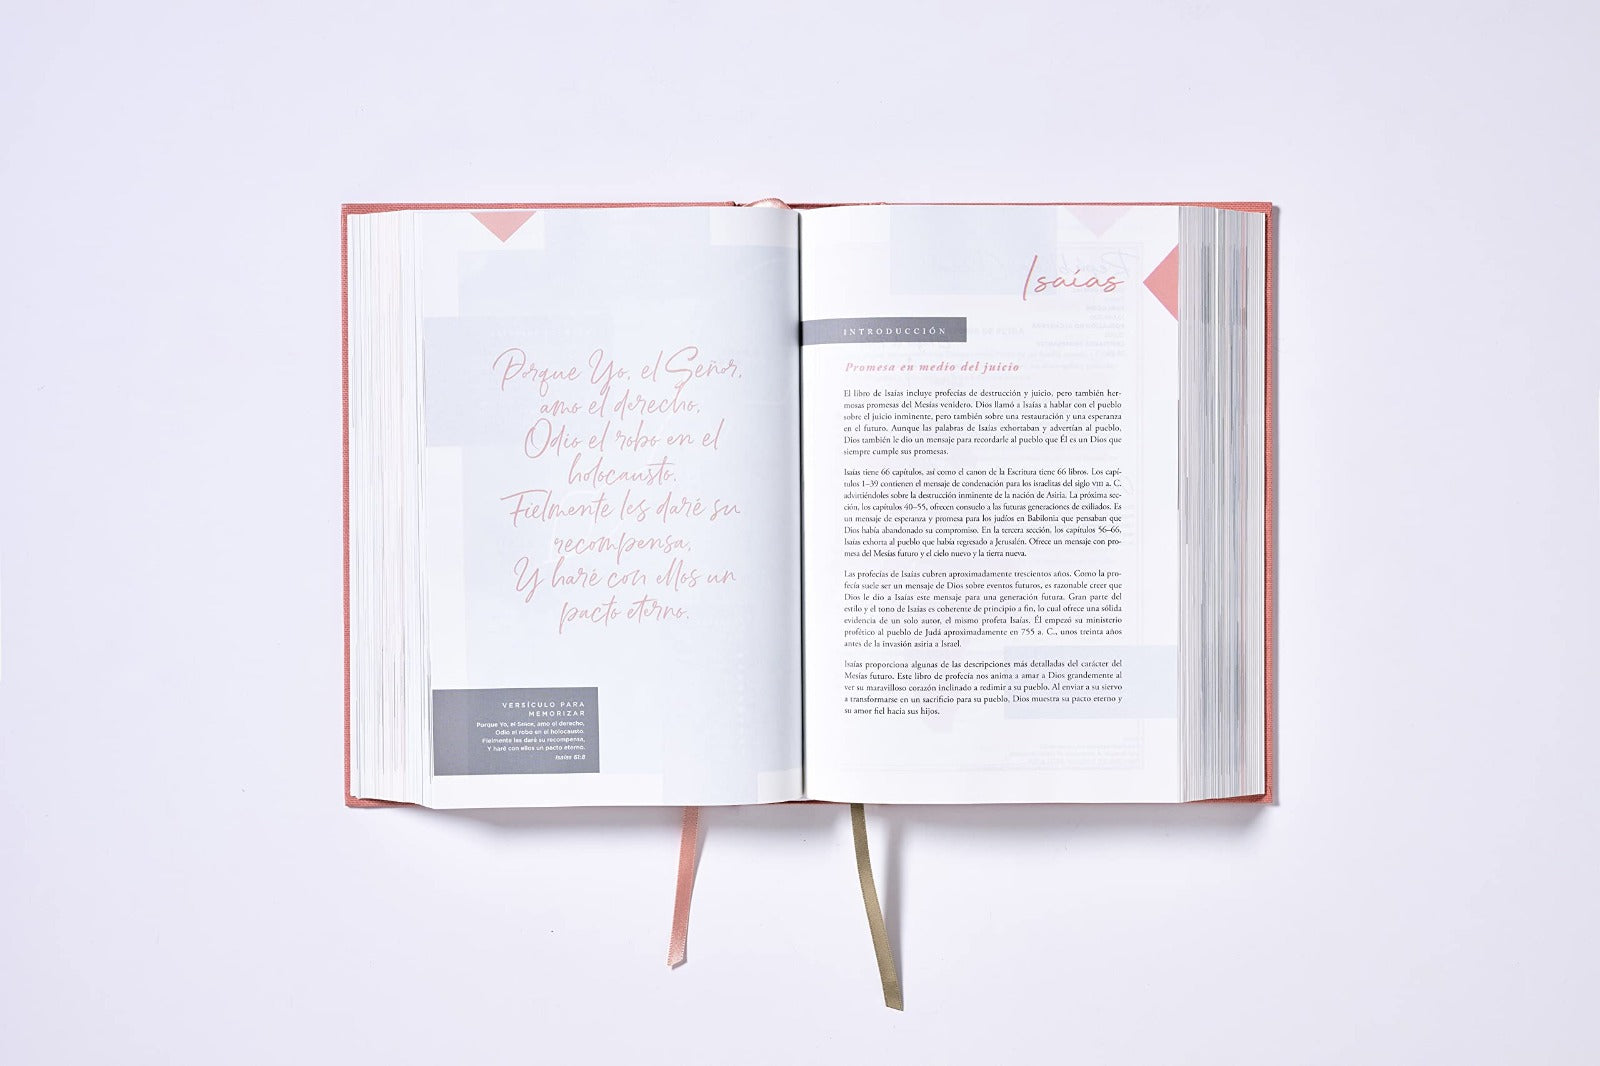 Porque Yo, el Señor,
amo el derecho,
Odio el robo en el
holocausto.
Fielmente les daré su
recompensa,
Y haré con ellos un
pacto eterno.
VERSÍCULO PARA
MEMORIZAR
Porque Yo, el Señor, amo el derecho,
Odio el robo en el holocausto.
Fielmente les daré su recompensa,
Y haré con ellos un pacto eterno.
Isaías 61:8
Isaías
INTRODUCCIÓN
Promesa en medio del juicio
El libro de Isaías incluye profecías de destrucción y juicio, pero también her-
mosas promesas del Mesías venidero. Dios llamó a Isaías a hablar con el pueblo
sobre el juicio inminente, pero también sobre una restauración y una esperanza
en el futuro. Aunque las palabras de Isaías exhortaban y advertían al pueblo,
Dios también le dio un mensaje para recordarle al pueblo que Él es un Dios que
siempre cumple sus promesas.
Isaías tiene 66 capítulos, así como el canon de la Escritura tiene 66 libros. Los capí-
tulos 1–39 contienen el mensaje de condenación para los israelitas del siglo VIII a. C.
advirtiéndoles sobre la destrucción inminente de la nación de Asiria. La próxima sec-
ción, los capítulos 40–55, ofrecen consuelo a las futuras generaciones de exiliados. Es
un mensaje de esperanza y promesa para los judíos en Babilonia que pensaban que
Dios había abandonado su compromiso. En la tercera sección, los capítulos 56–66,
Isaías exhorta al pueblo que había regresado a Jerusalén. Ofrece un mensaje con pro-
mesa del Mesías futuro y el cielo nuevo y la tierra nueva.
Las profecías de Isaías cubren aproximadamente trescientos años. Como la pro-
fecía suele ser un mensaje de Dios sobre eventos futuros, es razonable creer que
Dios le dio a Isaías este mensaje para una generación futura. Gran parte del
estilo y el tono de Isaías es coherente de principio a fin, lo cual ofrece una sólida
evidencia de un solo autor, el mismo profeta Isaías. Él empezó su ministerio
profético al pueblo de Judá aproximadamente en 755 a. C., unos treinta años
antes de la invasión asiria a Israel.
Isaías proporciona algunas de las descripciones más detalladas del carácter del
Mesías futuro. Este libro de profecía nos anima a amar a Dios grandemente al
ver su maravilloso corazón inclinado a redimir a su pueblo. Al enviar a su siervo
a transformarse en un sacrificio para su pueblo, Dios muestra su pacto eterno y
su amor fiel hacia sus hijos.